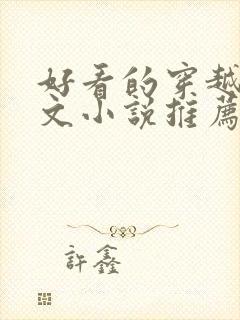 好看的穿越
文小説推薦
許鑫